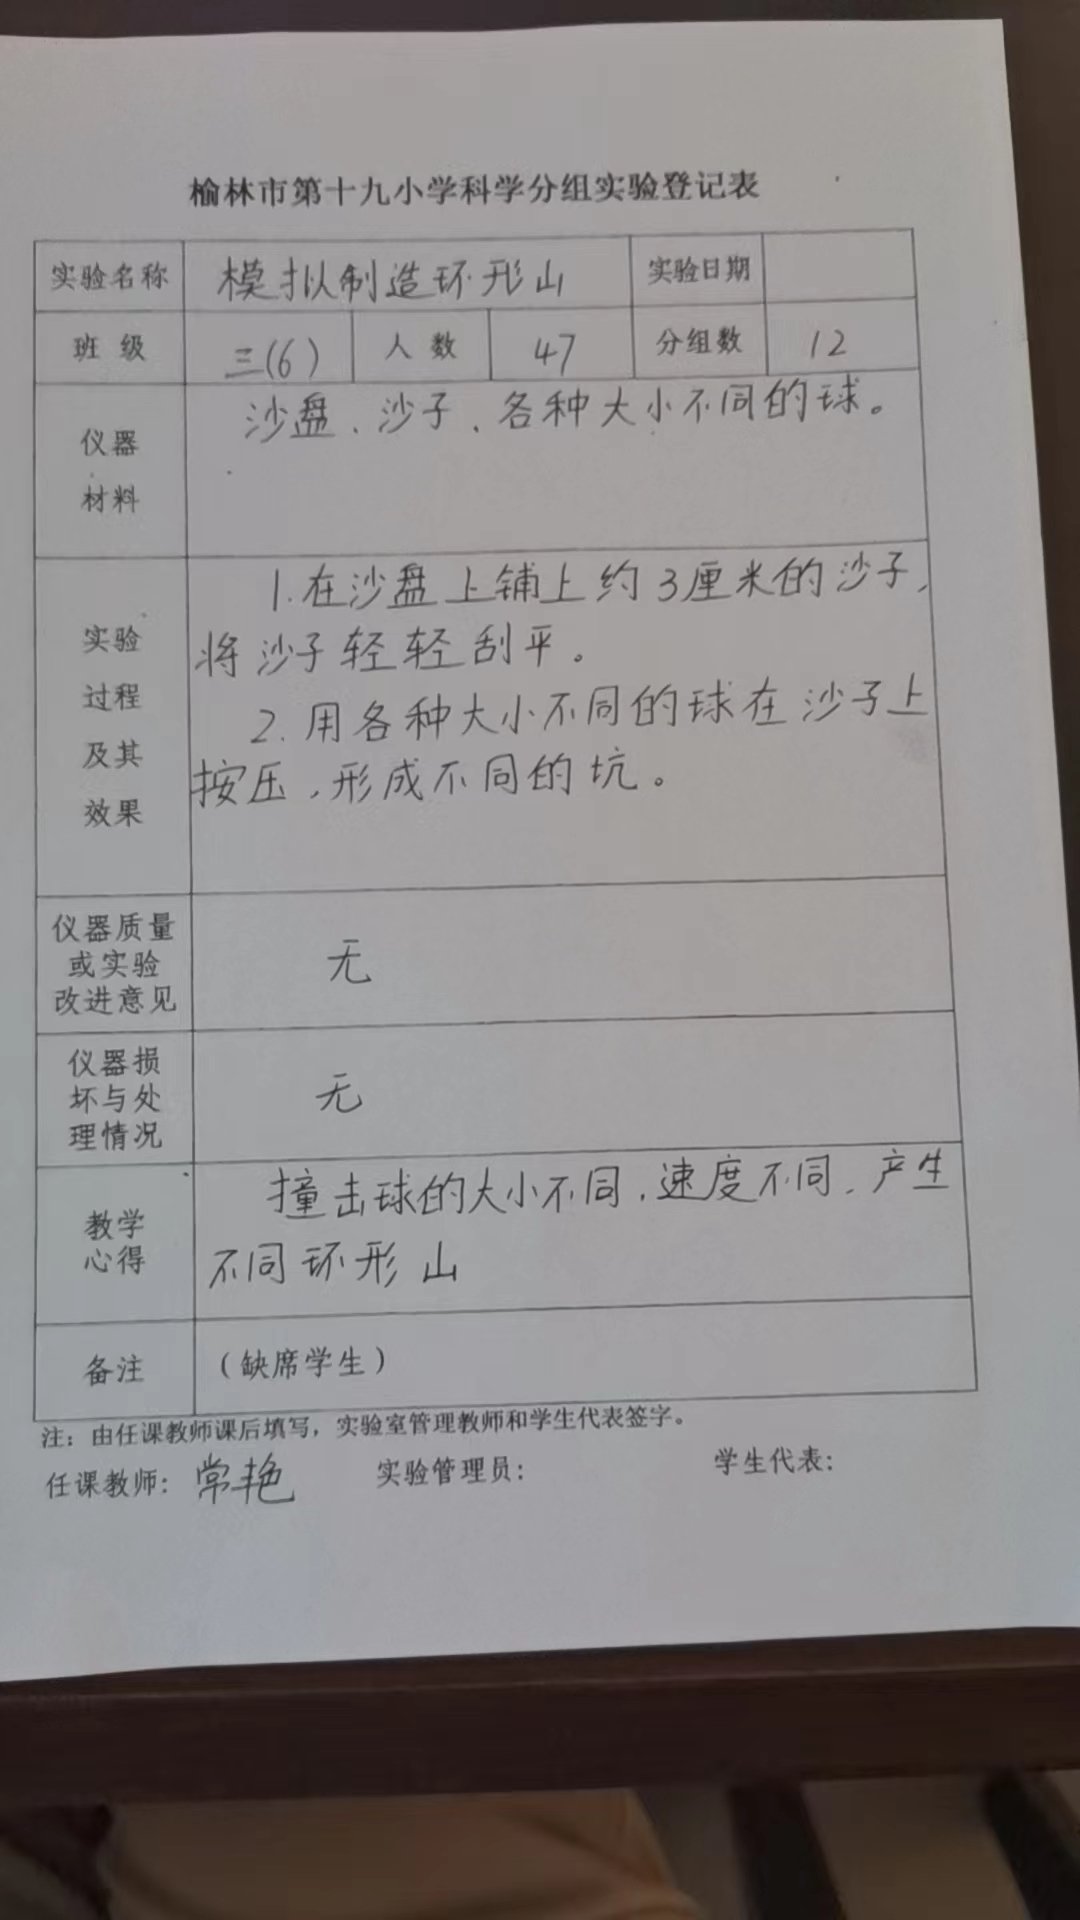 榆林市第十九小学科学分组实验登记表
实验名称 模拟制造环形山 实验日期
班 级 三(6) 人 数 47 分组数 12
仪器
材料
沙盘、沙子、各种大小不同的球。
实验
过程
及其
效果
1.在沙盘上铺上约3厘米的沙子,
将沙子轻轻刮平。
2.用各种大小不同的球在沙子上
按压,形成不同的坑。
仪器质量
或实验
改进意见
无
仪器损
坏与处
理情况
无
教学
心得
撞击球的大小不同,速度不同,产生
不同环形山
备注 (缺席学生)
注:由任课教师课后填写,实验室管理教师和学生代表签字。
任课教师:常艳 实验管理员: 学生代表: